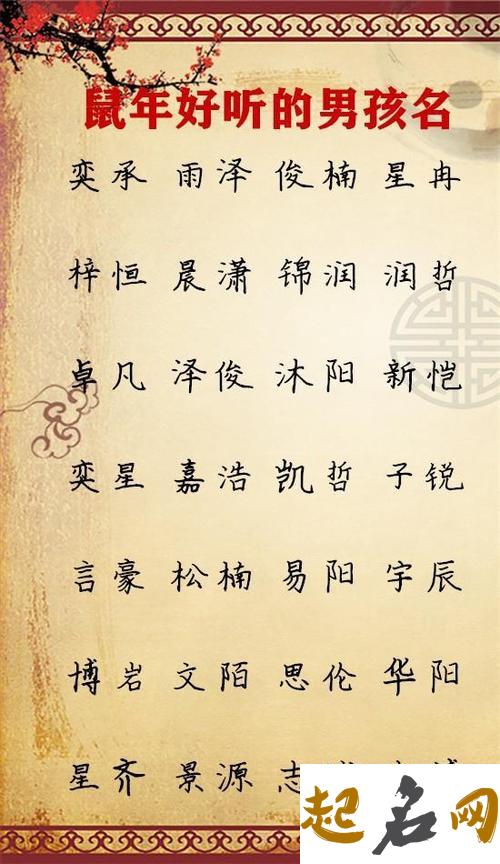 鼠年好听的男孩名
奕承 雨泽 俊楠 星冉
梓恒 晨潇 锦润 润哲
卓凡 泽俊 沐阳 新恺
奕星 嘉浩 凯哲 子锐
言豪 松楠 易阳 宇辰
博岩 文陌 思伦 华阳
星齐 景源 志
起名网